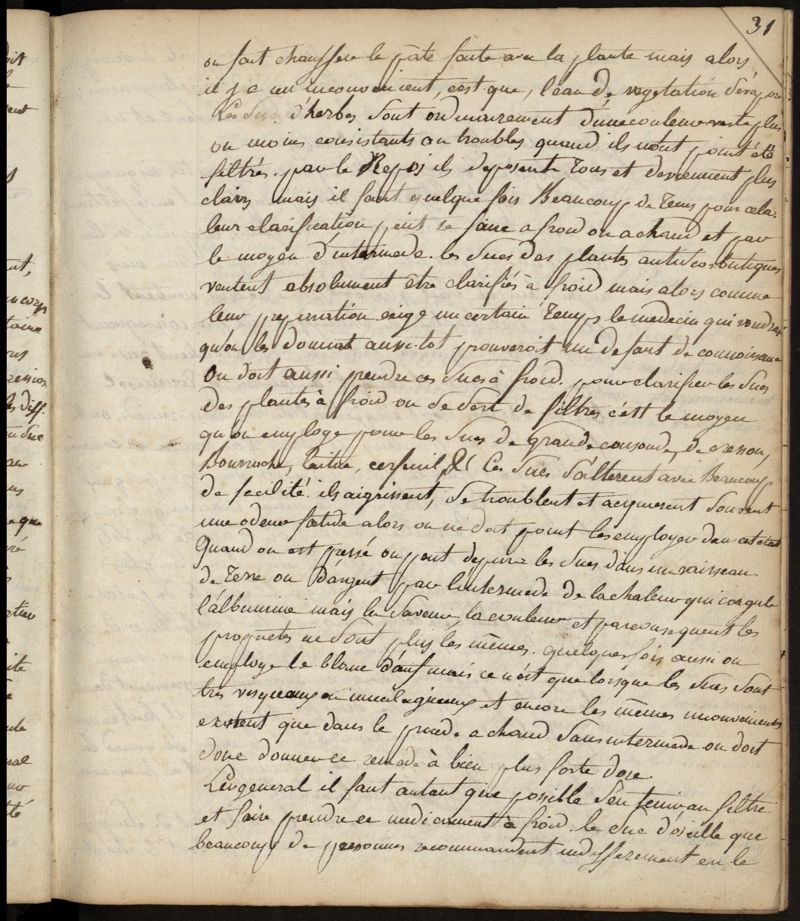 31
on fait chauffer le pate faite avec la plante mais alors,
il y a un inconvenient, c'est que, l'eau de vegetation s'évapore
Les Sucs d'herbes Sont ordinairement d'une couleur verte plus
ou moins consistants ou troubles quand ils n'ont point été
filtrés. par le Repos ils deposent Tous et deviennent plus
clairs mais il faut quelque fois Beaucoup de Tems pour cela.
leur clarification peut se faire a froid ou a chaud et par
le moyen d'intermede. les Sucs des plantes antiscorbutiques
veulent absolument être clarifiés à froid mais alors comme
leur preparation exige un certain Temps le medecin qui voudroit
qu'on les donnat aussi-tot prouveroit un defaut de connoissance
On doit aussi prendre ces Sucs à froid. pour clarifier les Sucs
des plantes à froid on Se Sert de filtres c'est le moyen
qu'on employe pour les Sucs de Grande consoude, de cresson,
Bourrache, laitue, cerfeuil, &c Ces Sucs S'alterent avec Beaucoup
de facilité. ils aigrissent, Se troublent et acquierent Souvent
une odeur fœtide alors on ne doit point les employer dans cet etat
Quand on est pressé on peut depurer les Sucs dans un vaisseau
de Terre ou D'argent par l'intermede de la chaleur qui coagule
l'albumine mais la Saveur, la couleur et par consequent les
proprietés ne Sont plus les mêmes. quelques fois aussi on
employe le blanc d'œuf mais ce n'est que lorsque les Sucs Sont
très visqueux ou mucilagineux et encore les mêmes inconvenients
existent que dans le procede a chaud Sans intermede on doit
donc donner ce remede à bien plus forte dose
En general il faut autant que possible S'en tenir au filtre
et faire prendre ce medicament à froid. le Suc d'oseille que
beaucoup de personnes recommandent indifferemment en le